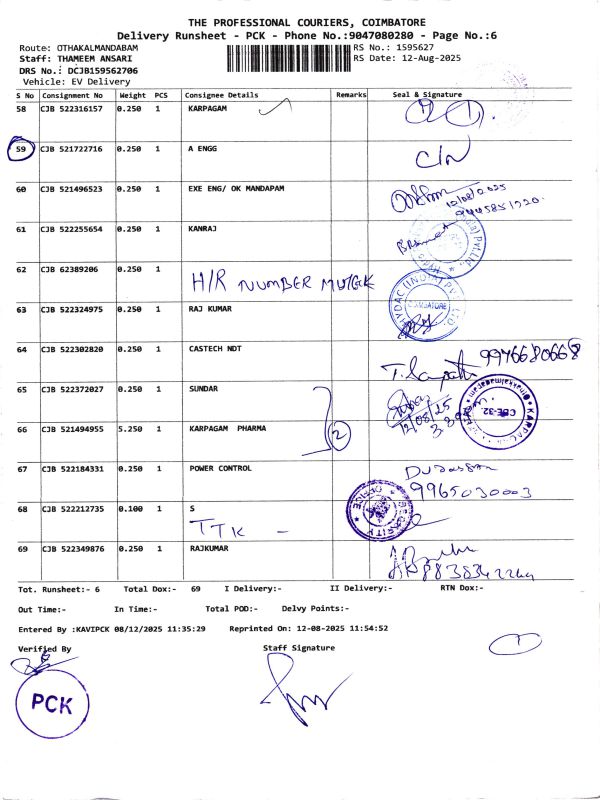 THE PROFESSIONAL COURIERS, COIMBATORE
Delivery Runsheet - PCK - Phone No.:9047080280 - Page No.:6
Route: OTHAKALMANDABAM
RS No.: 1595627
Staff: THAMEEM ANSARI
RS Date: 12-Aug-2025
DRS No.: DCJB159562706
Vehicle: EV Delivery
S No Consignment No Weight PCS Consignee Details Remarks Seal & Signature
58 CJB 522316157 0.250 1 KARPAGAM
59 CJB 521722716 0.250 1 A ENGG
C/N
60 CJB 521496523 0.250 1 EXE ENG/ OK MANDAPAM
61 CJB 522255654 0.250 1 KANRAJ
62 CJB 62389206 0.250 1
H/R NUMBER
63 CJB 522324975 0.250 1 RAJ KUMAR
COIMBATORE
64 CJB 522302820 0.250 1 CASTECH NDT
9976680668
65 CJB 522372027 0.250 1 SUNDAR
12/08/25
CBE-32.
66 CJB 521494955 5.250 1 KARPAGAM PHARMA
2
67 CJB 522184331 0.250 1 POWER CONTROL
9965030003
68 CJB 522212735 0.100 1 S
TTK -
69 CJB 522349876 0.250 1 RAJKUMAR
Tot. Runsheet:- 6 Total Dox:- 69 I Delivery:- II Delivery:- RTN Dox:-
Out Time:- In Time:- Total POD:- Delvy Points:-
Entered By :KAVIPCK 08/12/2025 11:35:29 Reprinted On: 12-08-2025 11:54:52
Verified By Staff Signature
PCK